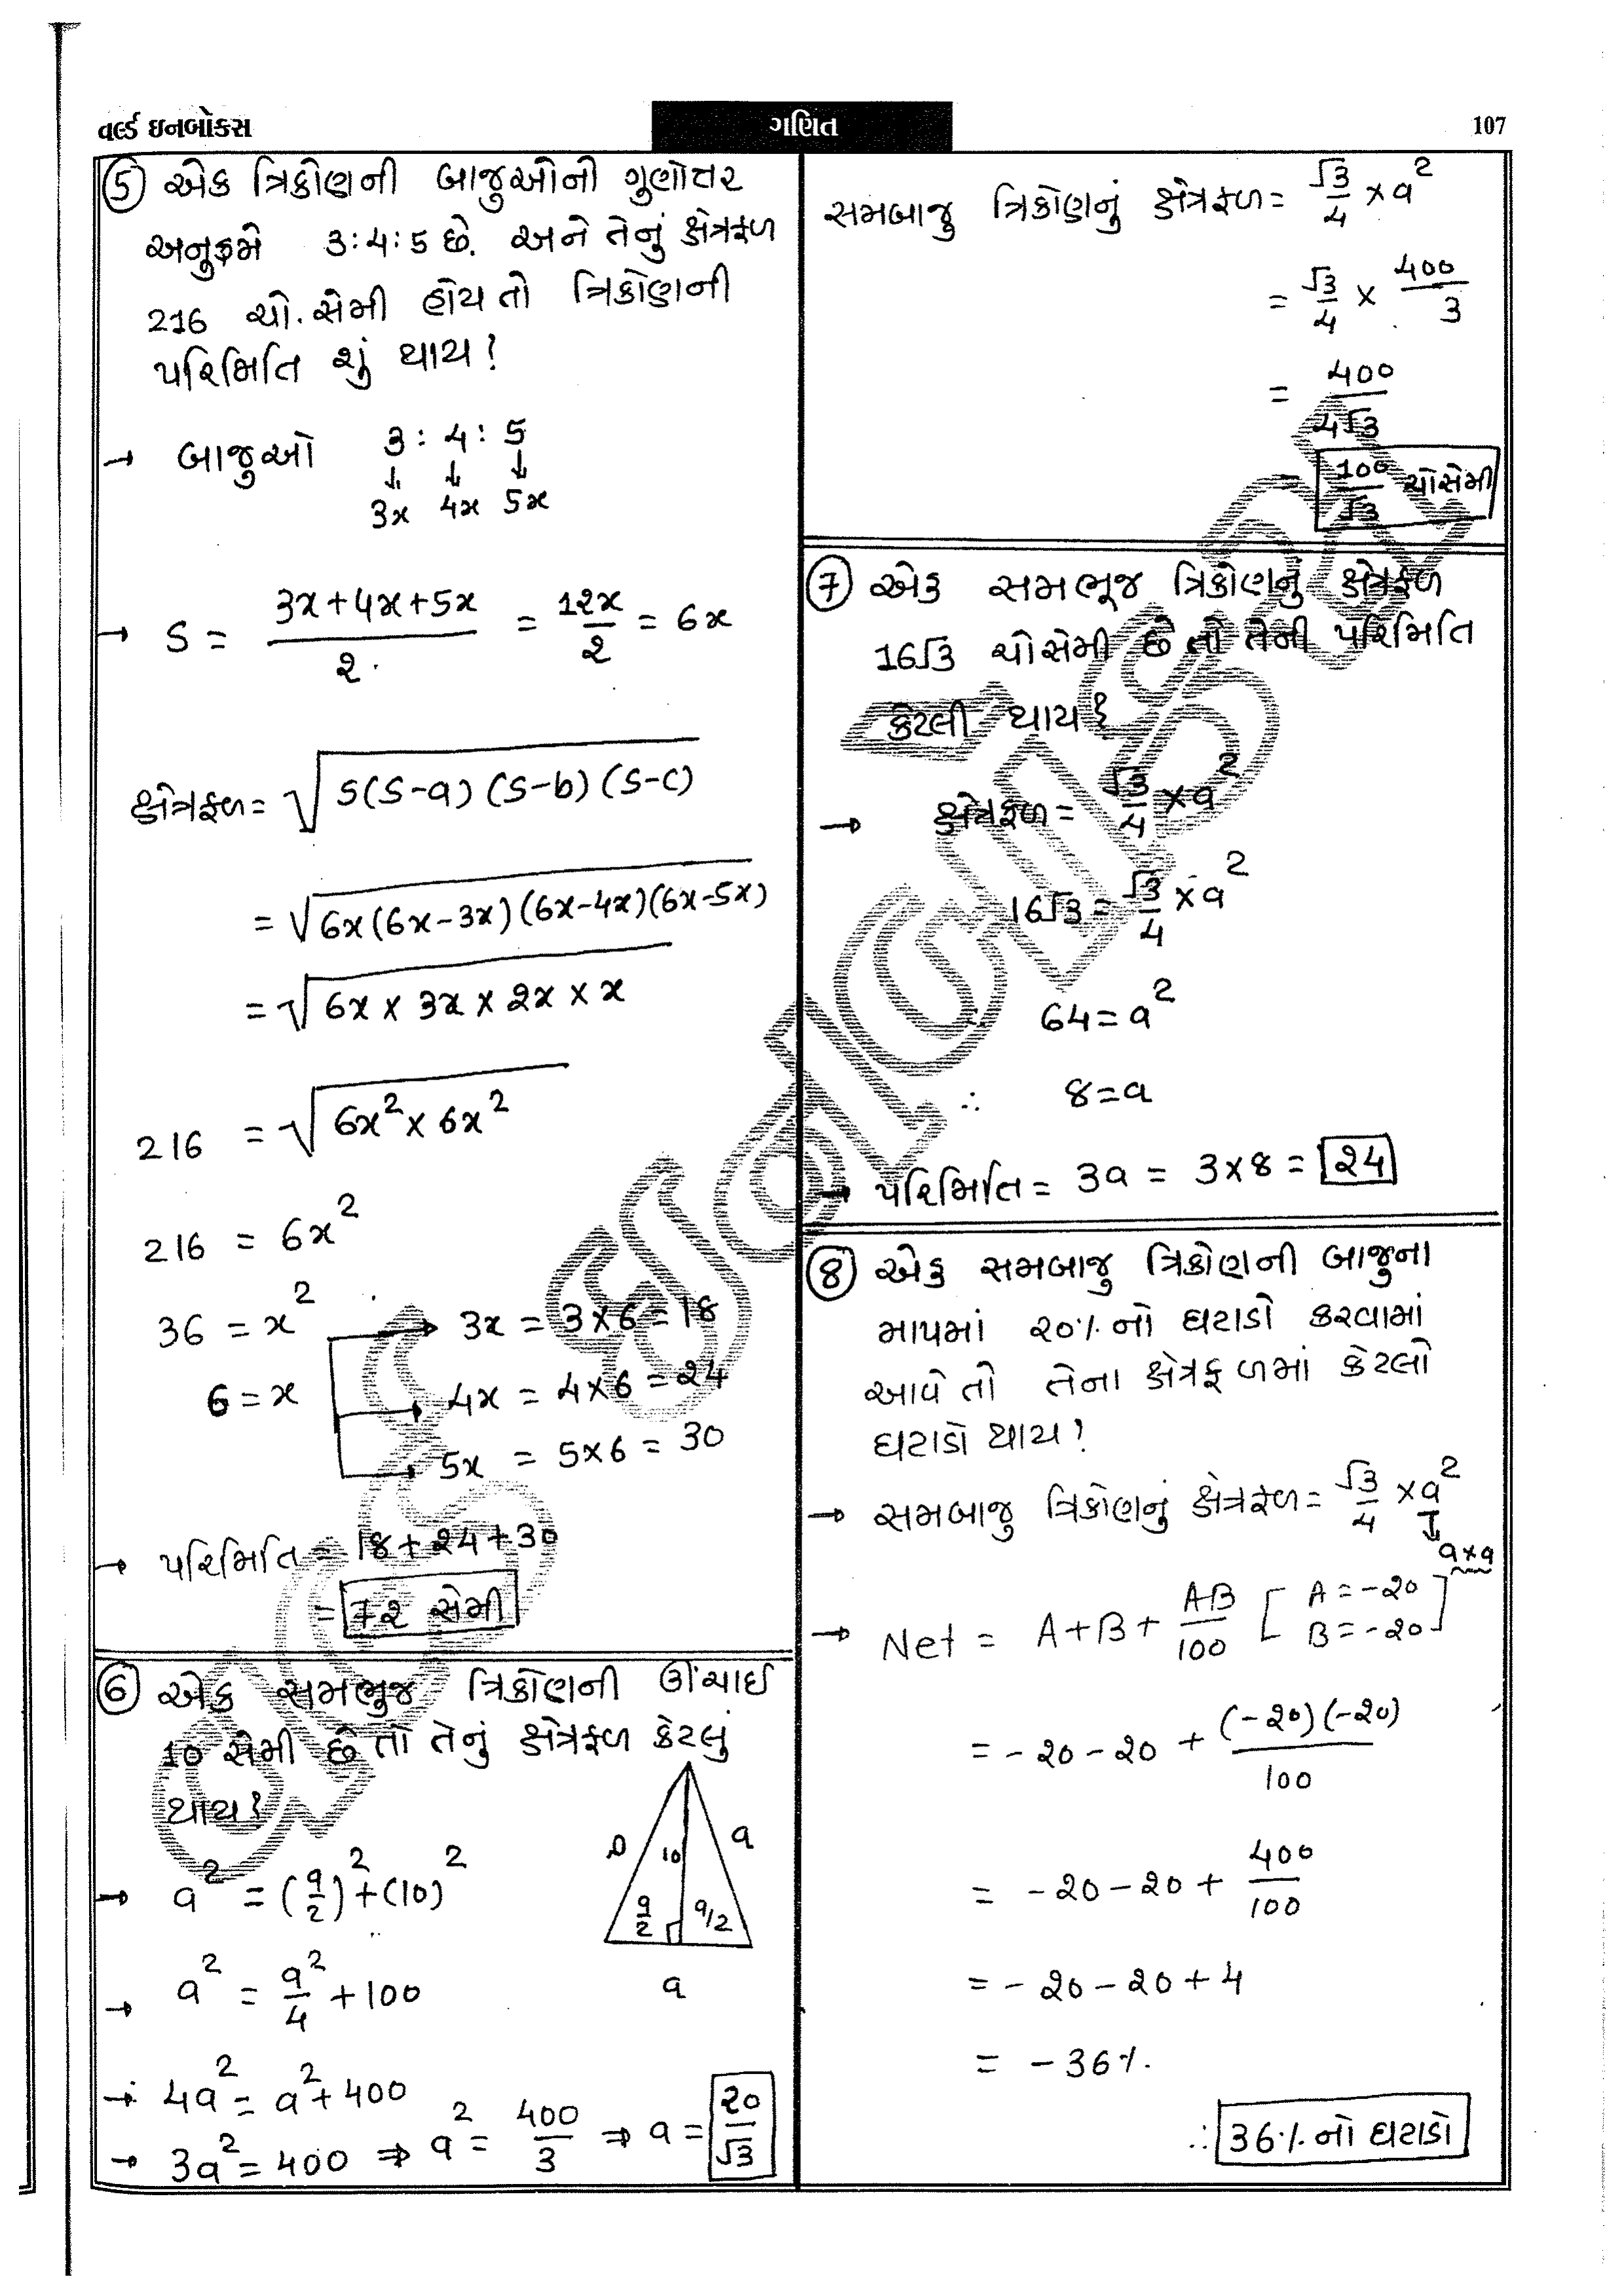 વર્લ્ડ ઇનબોક્સ
ગણિત
107
⑤ એક ત્રિકોણની બાજુઓનો ગુણોત્તર
અનુક્રમે 3:4:5 છે. અને તેનું ક્ષેત્રફળ
216 ચો.સેમી હોય તો ત્રિકોણની
પરિમિતિ શું થાય?
→ બાજુઓ 3 : 4 : 5
↓ ↓ ↓
3x 4x 5x
→ S = (3x+4x+5x)/2 = 12x/2 = 6x
ક્ષેત્રફળ = √(S(S-a)(S-b)(S-c))
= √(6x(6x-3x)(6x-4x)(6x-5x))
= √(6x × 3x × 2x × x)
216 = √(6x² × 6x²)
216 = 6x²
36 = x² → 3x = 3×6 = 18
6 = x → 4x = 4×6 = 24
→ 5x = 5×6 = 30
→ પરિમિતિ = 18+24+30
= 72 સેમી
⑥ એક સમભુજ ત્રિકોણની ઊંચાઈ
10 સેમી છે તો તેનું ક્ષેત્રફળ કેટલું
થાય?
a 10 a
a/2 a/2
a
→ a² = (a/2)² + (10)²
→ a² = a²/4 + 100
→ 4a² = a² + 400
→ 3a² = 400 ⇒ a² = 400/3 ⇒ a = 20/√3
સમબાજુ ત્રિકોણનું ક્ષેત્રફળ = √3/4 × a²
= √3/4 × 400/3
= 400/4√3
= 100/√3 ચોસેમી
⑦ એક સમભૂજ ત્રિકોણનું ક્ષેત્રફળ
16√3 ચોસેમી છે તો તેની પરિમિતિ
કેટલી થાય?
→ ક્ષેત્રફળ = √3/4 × a²
16√3 = √3/4 × a²
∴ 64 = a²
∴ 8 = a
→ પરિમિતિ = 3a = 3×8 = 24
⑧ એક સમબાજુ ત્રિકોણની બાજુના
માપમાં 20% નો ઘટાડો કરવામાં
આવે તો તેના ક્ષેત્રફળમાં કેટલો
ઘટાડો થાય?
→ સમબાજુ ત્રિકોણનું ક્ષેત્રફળ = √3/4 × a²
↓
a×a
→ Net = A+B+AB/100 [A = -20
B = -20]
= -20-20 + (-20)(-20)/100
= -20-20 + 400/100
= -20-20+4
= -36%.
∴ 36% નો ઘટાડો